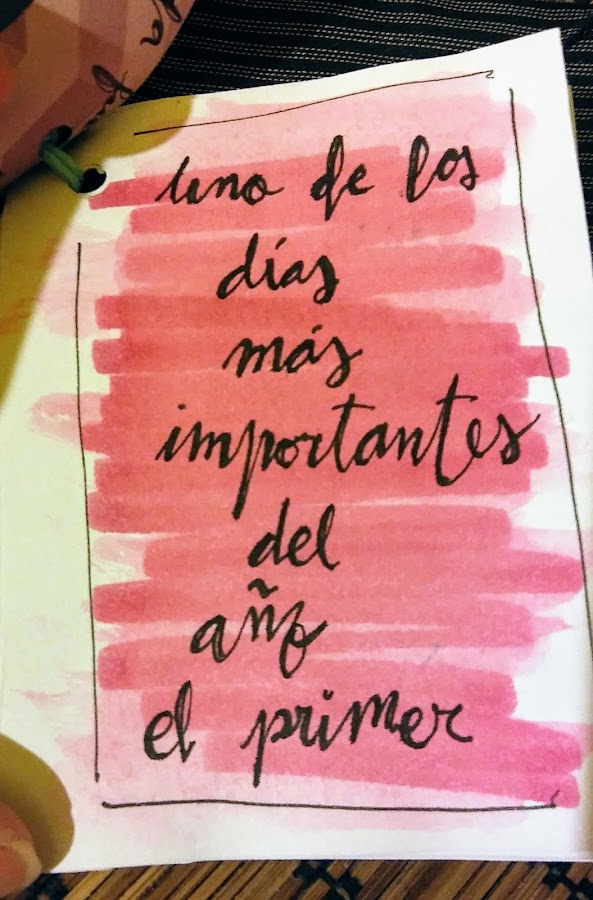 uno de los
días
más
importantes
del
año
el primer